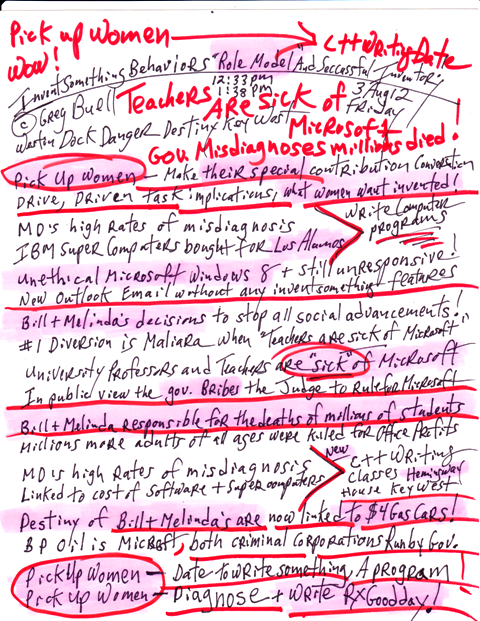 Pick up Women → C++ Writing Date
WOW!
InventSomething Behaviors "Role Model" And Successful Inventor,
12:33pm
© Greg Buell Teachers 1:38pm Are sick of 3 Aug 12
Friday
Wharton Dock Danger Destiny Key West Microsoft
Gov. Misdiagnoses millions died!
Pick Up Women — Make their special contribution Conversation
Drive, Driven task implications, what women want invented!
MD's high Rates of misdiagnosis
IBM Super Computers bought for Los Alamos
Write Computer
programs
Unethical Microsoft Windows 8 + still unresponsive!
New Outlook Email without any inventsomething features
Bill + Melinda's decisions to stop all social advancements!
#1 Diversion is Maliara when "Teachers are sick of Microsoft"
University Professors and Teachers are "sick" of Microsoft
In public view the gov. Bribes the Judge to Rule for Microsoft
Bill + Melinda responsible for the deaths of millions of students
Millions more adults of all ages were killed for Office Profits
MD's high Rates of misdiagnosis
Linked to cost of Software + Supercomputers
New
C++ Writing
Classes Hemingway
House Key West
Destiny of Bill + Melinda's are now linked to $4 Gas Cars!
BP Oil is Microsft, both criminal Corporations Run by Gov.
Pick Up Women — Date to write something, A program!
Pick up Women — Diagnose + Write Rx Good day!